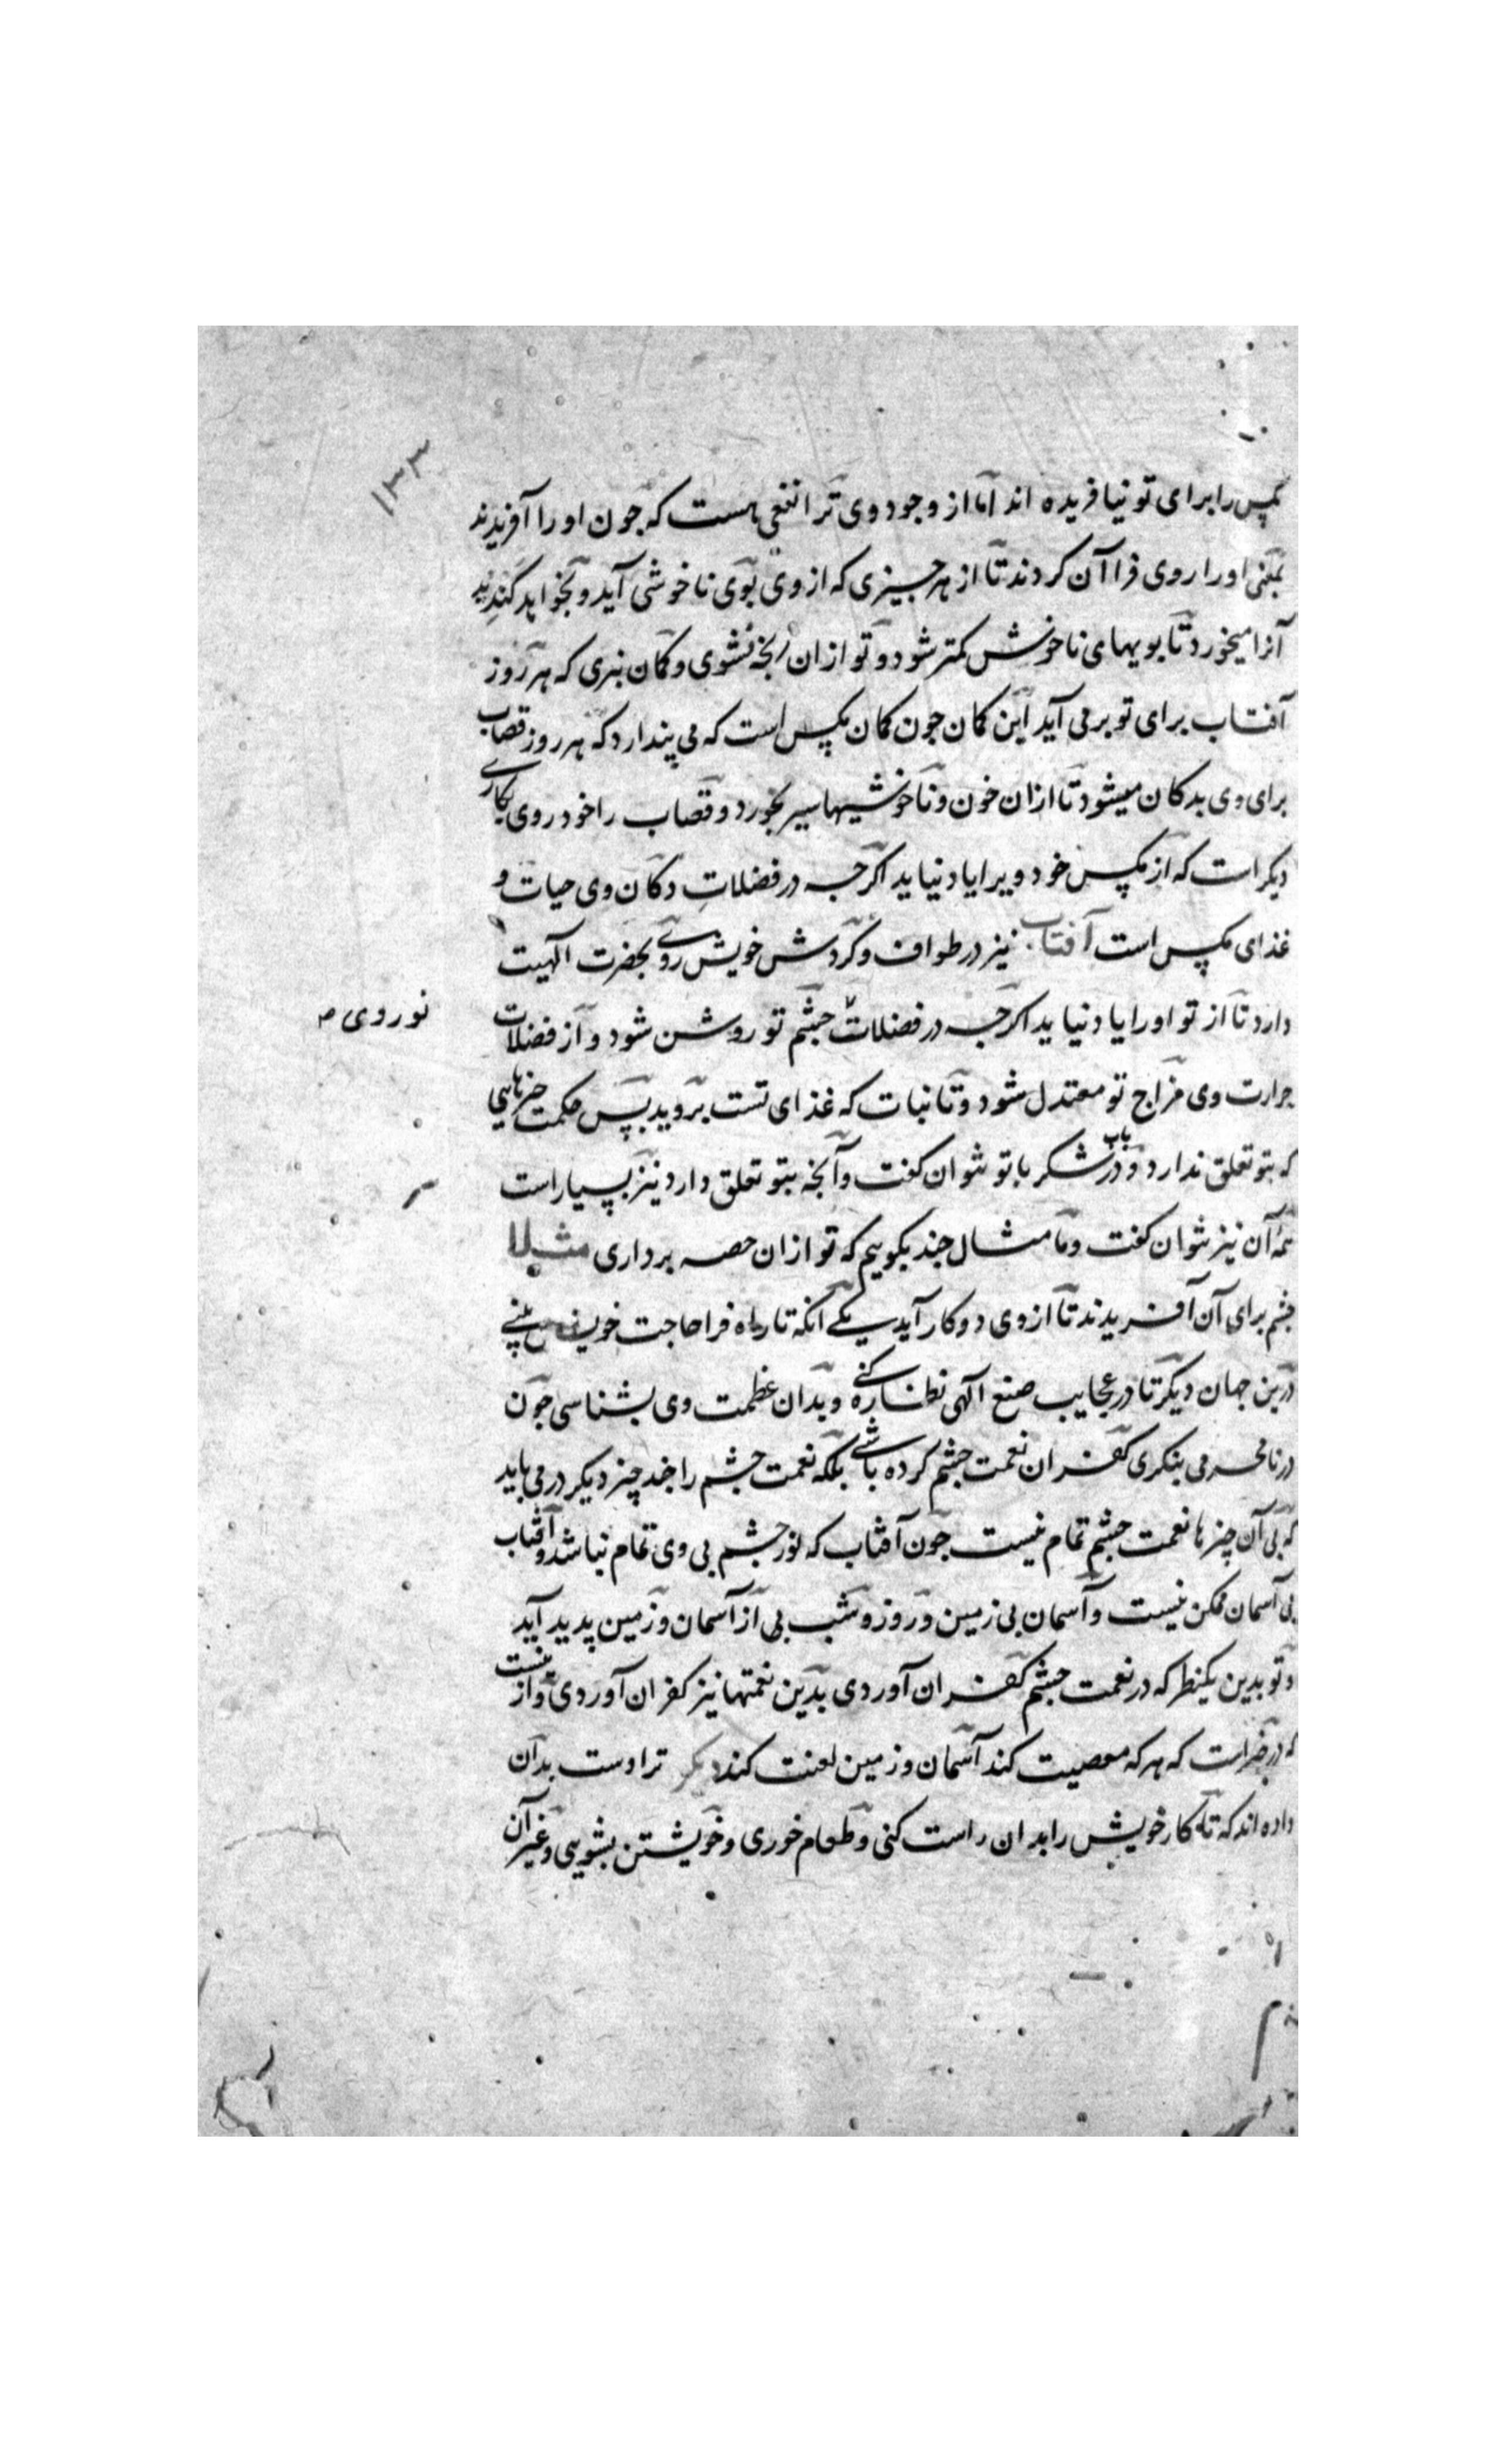 ۱۳۳
مکس را برای تو نیافریده اند اما از وجود وی ترا نفعی هست که جون او را آفریدند
بمعنی او را روی فرا آن کردند تا از هر جیزی که از وی بوی ناخوشی آید و بخواهد کندید
آنرا میخورد تا بویهای ناخوش کمتر شود و تو ازان رنجه نشوی و کمان نبری که هر روز
آفتاب برای تو بر می آید این کمان جون کمان مکس است که می پندارد که هر روز قصاب
برای وی بدکان میشود تا ازان خون و ناخوشیها سیر بخورد و قصاب را خود روی بکاری
دیکر است که از مکس خود ویرا یاد نیاید اکرجه در فضلات دکان وی حیات و
غذای مکس است آفتاب نیز در طواف و کردش خویش روی بحضرت الهیت
دارد تا از تو او را یاد نیاید اکرجه در فضلات جشم تو روشن شود و از فضلات
نور وی ص
حرارت وی مزاج تو معتدل شود و تا نبات که غذای تست بروید پس حکمت جیزهایی
که بتو تعلق ندارد و در باب شکر با تو نتوان کفت و آنجه بتو تعلق دارد نیز بسیار است
همه آن نیز نتوان کفت و ما مثال جند بکوییم که تو ازان حصه برداری مثلا
جشم برای آن آفریدند تا از وی دو کار آید یکی آنکه تا راه فرا حاجت خویش بینی
درین جهان دیکر تا در عجایب صنع الهی نظاره کنی و بدان عظمت وی بشناسی جون
در نامحرمی بنکری کفران نعمت جشم کرده باشی بلکه نعمت جشم را جند چیز دیکر در می باید
که بی آن چیزها نعمت جشم تمام نیست جون آفتاب که نور جشم بی وی تمام نباشد و آفتاب
بی آسمان ممکن نیست و آسمان بی زمین و روز و شب بی از آسمان و زمین پدید آید
و تو بدین یکنظر که در نعمت جشم کفران آوردی بدین نعمتها نیز کفران آوردی و از نیست
که در خبر است که هر که معصیت کند آسمان و زمین لعنت کند دیکر ترا دست بدان
داده اند که تا کار خویش را بدان راست کنی و طعام خوری و خویشتن بشویی و غیر آن